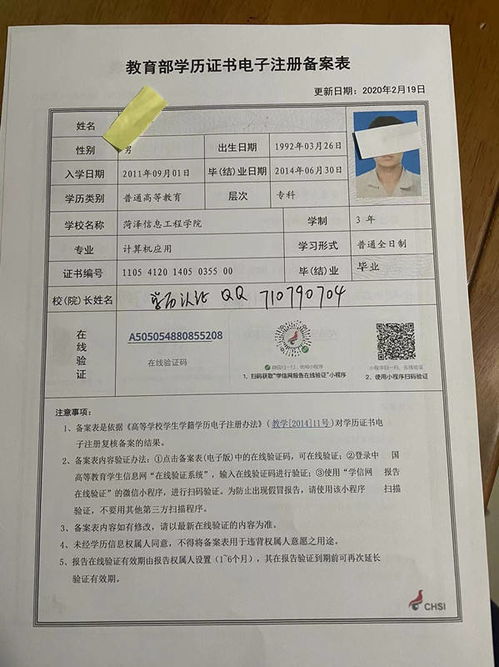 教育部学历证书电子注册备案表
更新日期：2020年2月19日
姓名
性别 男 出生日期 1992年03月26日
入学日期 2011年09月01日 毕(结)业日期 2014年06月30日
学历类别 普通高等教育 层次 专科
学校名称 菏泽信息工程学院 学制 3 年
专业 计算机应用 学习形式 普通全日制
证书编号 1105 4120 1405 0355 00 毕(结)业 毕业
校(院)长姓名 学历认证 QQ 710790704
在线验证
A505054880855208
在线验证码
1、扫码获取"学信网报告在线验证"小程序
2、使用小程序扫码验证
注意事项：
1、备案表是依据《高等学校学生学籍学历电子注册办法》(教学[2014]11号)对学历证书电
子注册复核备案的结果。
2、备案表内容验证办法：①点击备案表(电子版)中的在线验证码，可在线验证；②登录中 国
高等教育学生信息网"在线验证系统"，输入在线验证码进行验证；③使用"学信网 报告
在线验证"的微信小程序，进行扫码验证。为防止出现假冒报告，请使用该小程序 扫描
验证，不要用其他第三方扫描程序。
3、备案表内容如有修改，请以最新在线验证的内容为准。
4、未经学历信息权属人同意，不得将备案表用于违背权属人意愿之用途。
5、报告在线验证有效期由报告权属人设置(1~6个月)，其在报告验证到期前可再次延长
验证有效期。
CHSI